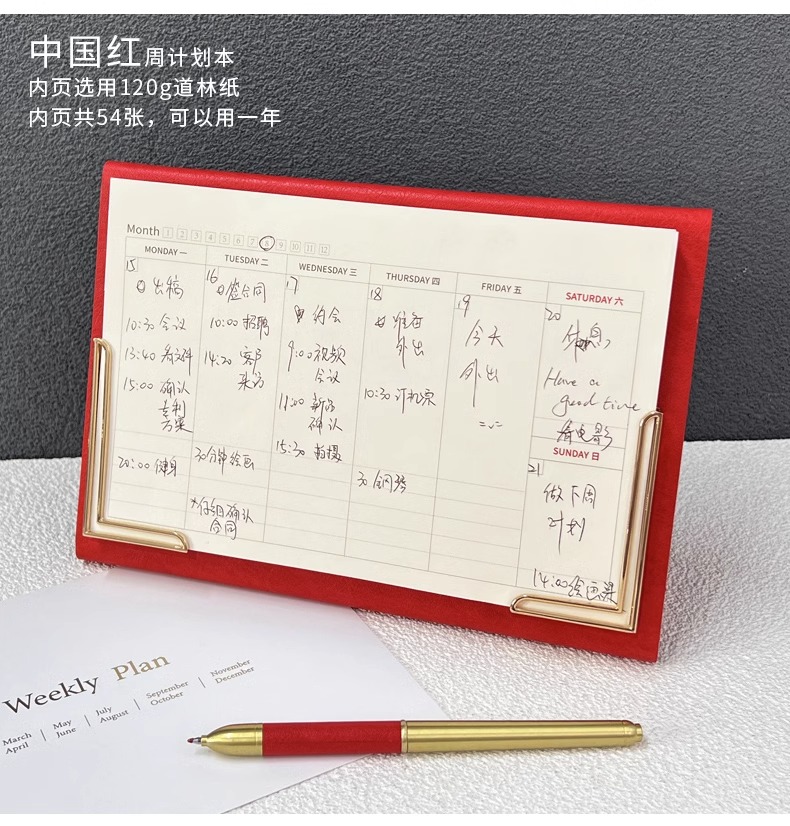 中国红周计划本
内页选用120g道林纸
内页共54张，可以用一年
Month 1 2 3 4 5 6 7 8 9 10 11 12
MONDAY 一
15
出稿
10:30 会议
15:00 确认
专利
方案
20:00 健身
TUESDAY 二
16
签合同
10:00 招聘
14:20 客户
来访
30分钟绘画
*仔细确认
合同
WEDNESDAY 三
17
约会
9:00 视频
会议
11:00 新品
确认
15:30 拍摄
THURSDAY 四
18
准备
外出
10:30 订机票
30 钢琴
FRIDAY 五
19
今天
外出
SATURDAY 六
20
休息
Have a
good time
看电影
SUNDAY 日
21
做下周
计划
14:00绘画课
Weekly Plan
March
April
May
June
July
August
September
October
November
December